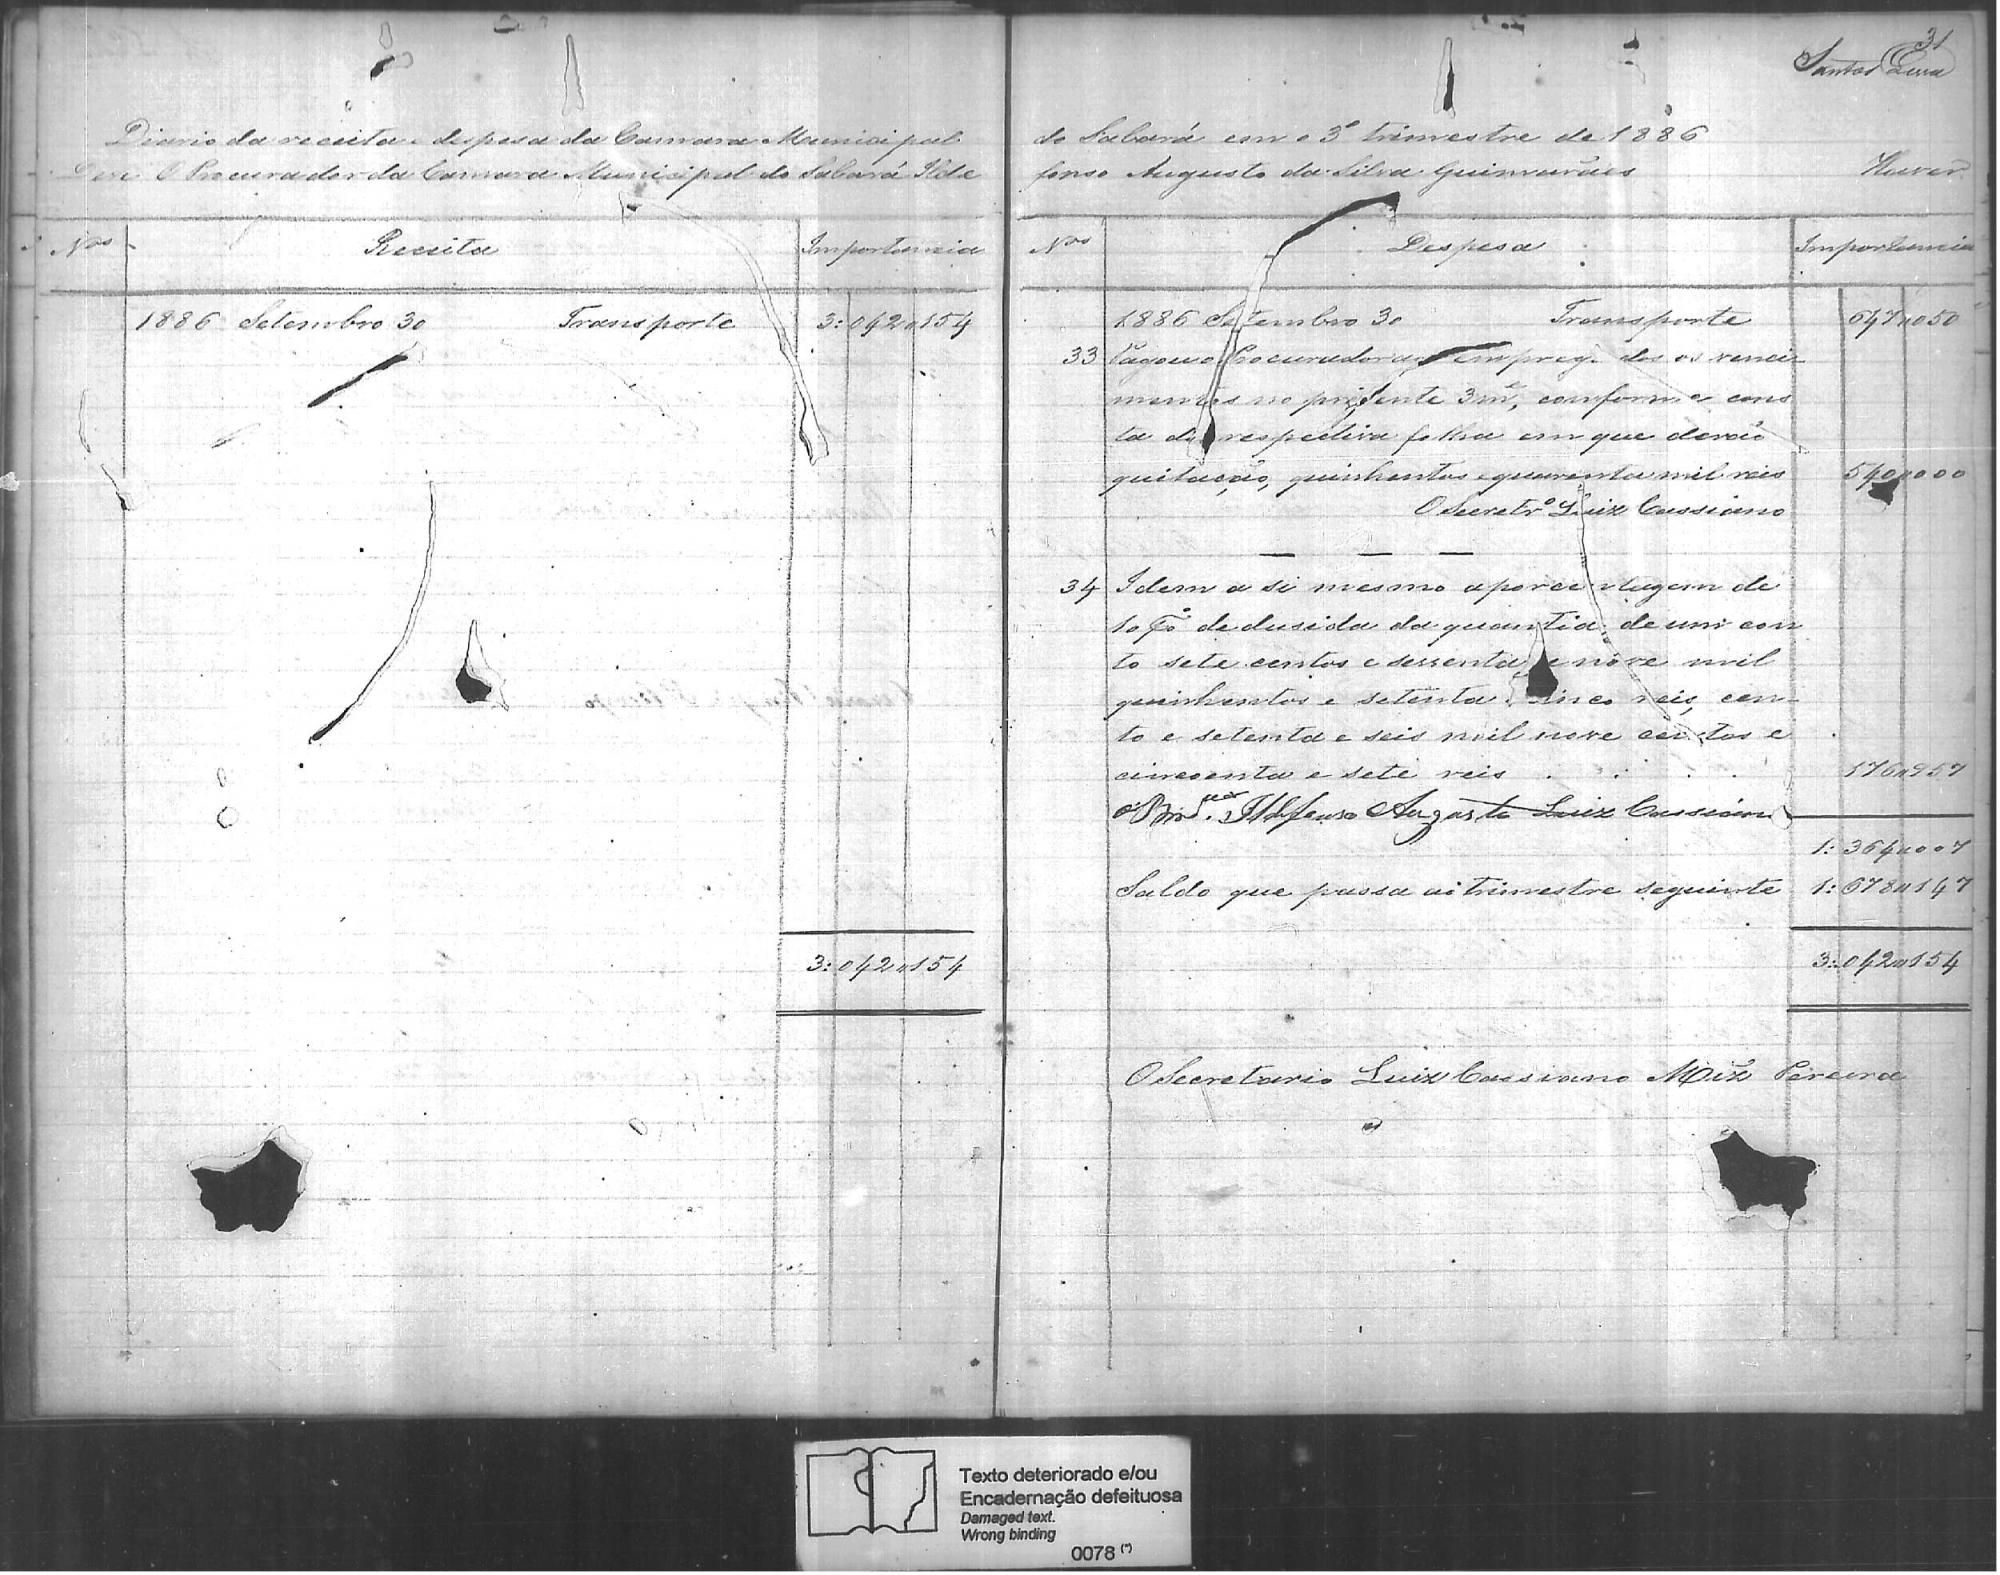 Diario da receita e despesa da Camara Municipal
Deve O Procurador da Camara Municipal do Sabará Ilde
Nos Receita Importancia
1886 Setembro 30 Transporte 3:042"154
3:042"154
31
Santos Lima
do Sabará em o 3º trimestre de 1886
fonso Augusto da Silva Guimarães Haver
Nos Despesa Importancia
1886 Setembro 30 Transporte 647"050
33 Pagou o Procurador aos empregados os venci
mentos no presente 3m̃, conforme cons
ta da respectiva folha em que derão
quitação, quinhentos e quarenta mil reis 540"000
O Secretrº Luiz Cassiano
34 Idem a si mesmo a porcentagem de
10 % dedusida da quantia de um con
to sete centos e sessenta e nove mil
quinhentos e setenta cinco reis, cen-
to e setenta e seis mil nove centos e
cincoenta e sete reis . . . . 176"957
Ildefonso Augusto Luiz Cassiano
1:364"007
Saldo que passa ao trimestre seguinte 1:678"147
3:042"154
O Secretario Luiz Cassiano Miz̃ Pereira
Texto deteriorado e/ou
Encadernação defeituosa
Damaged text.
Wrong binding
0078 (*)